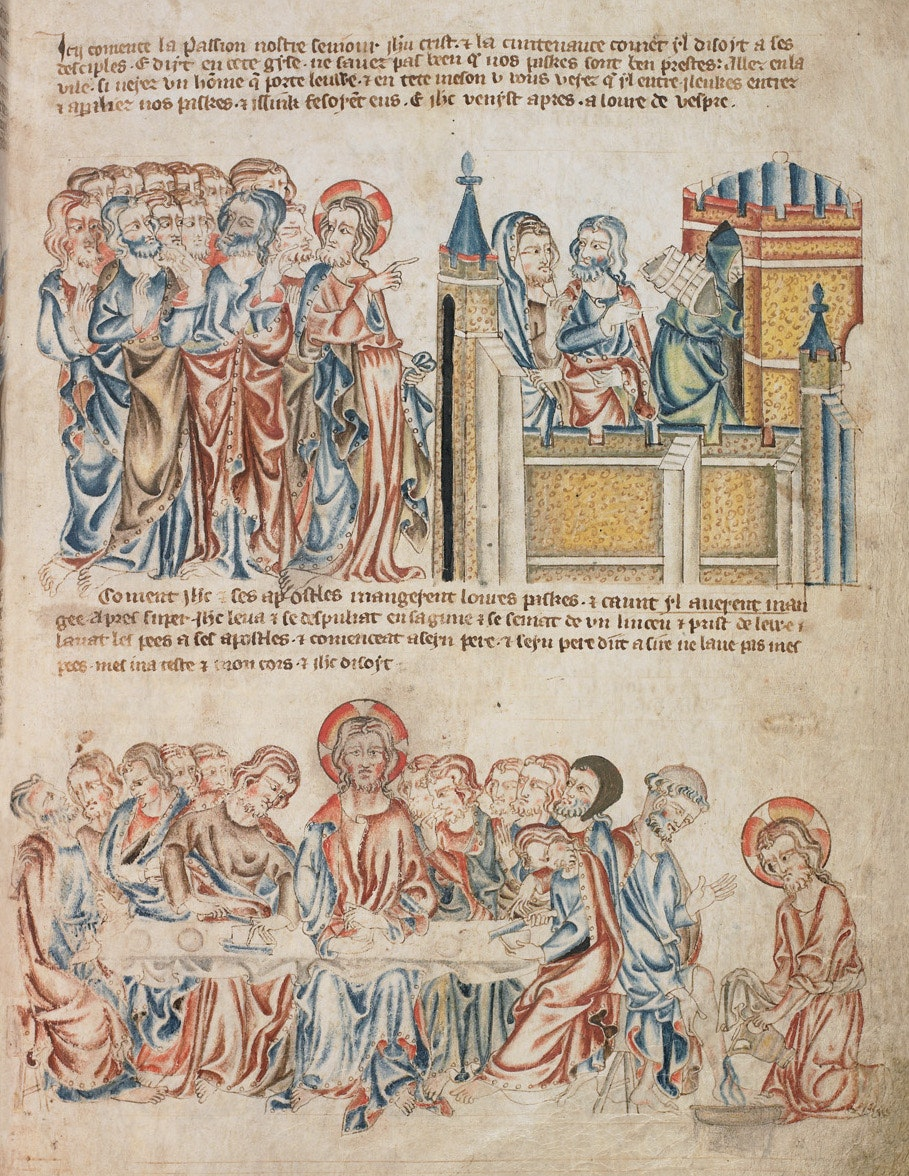 Icy comence la Passion nostre seniour ihu crist · & la cuntenaunce coment yl disoyt a ses
desciples · E dyt en cete gyse · ne sauet pas ben q̄ nos paskes sont ben prestes · Aller en la
vile · si veyer vn hōme q̄ porte leuwe · & en cete meson v vous veyer q̄ yl entre · yleukes entrer
& aparilier nos paskes · & issint fesoyēt eus · E ihc venyst apres · a loure de vespre ·
Coment ihc & ses apostles mangerent loures paskes · & caunt yl auerent man
gee · Apres super · ihc leua & se despuliat en sa gune & se seinat de vn linceu & prist de lewe &
lauat les pees a ses apostles · & comenceat a seyn pere · & seyn pere dūt a sire ne laue pas mes
pees · mes ma teste & mon cors · & ihc disoyt ·